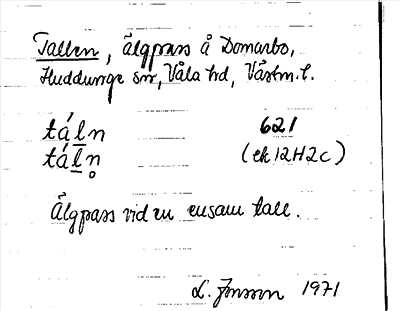 Tallen, älgpass å Domarbo,
Huddunge sn, Våla hd, Västm. l.
táḻn 621
táḻn̥ (ek 12H2c)
Älgpass vid en ensam tall.
L. Jonsson 1971